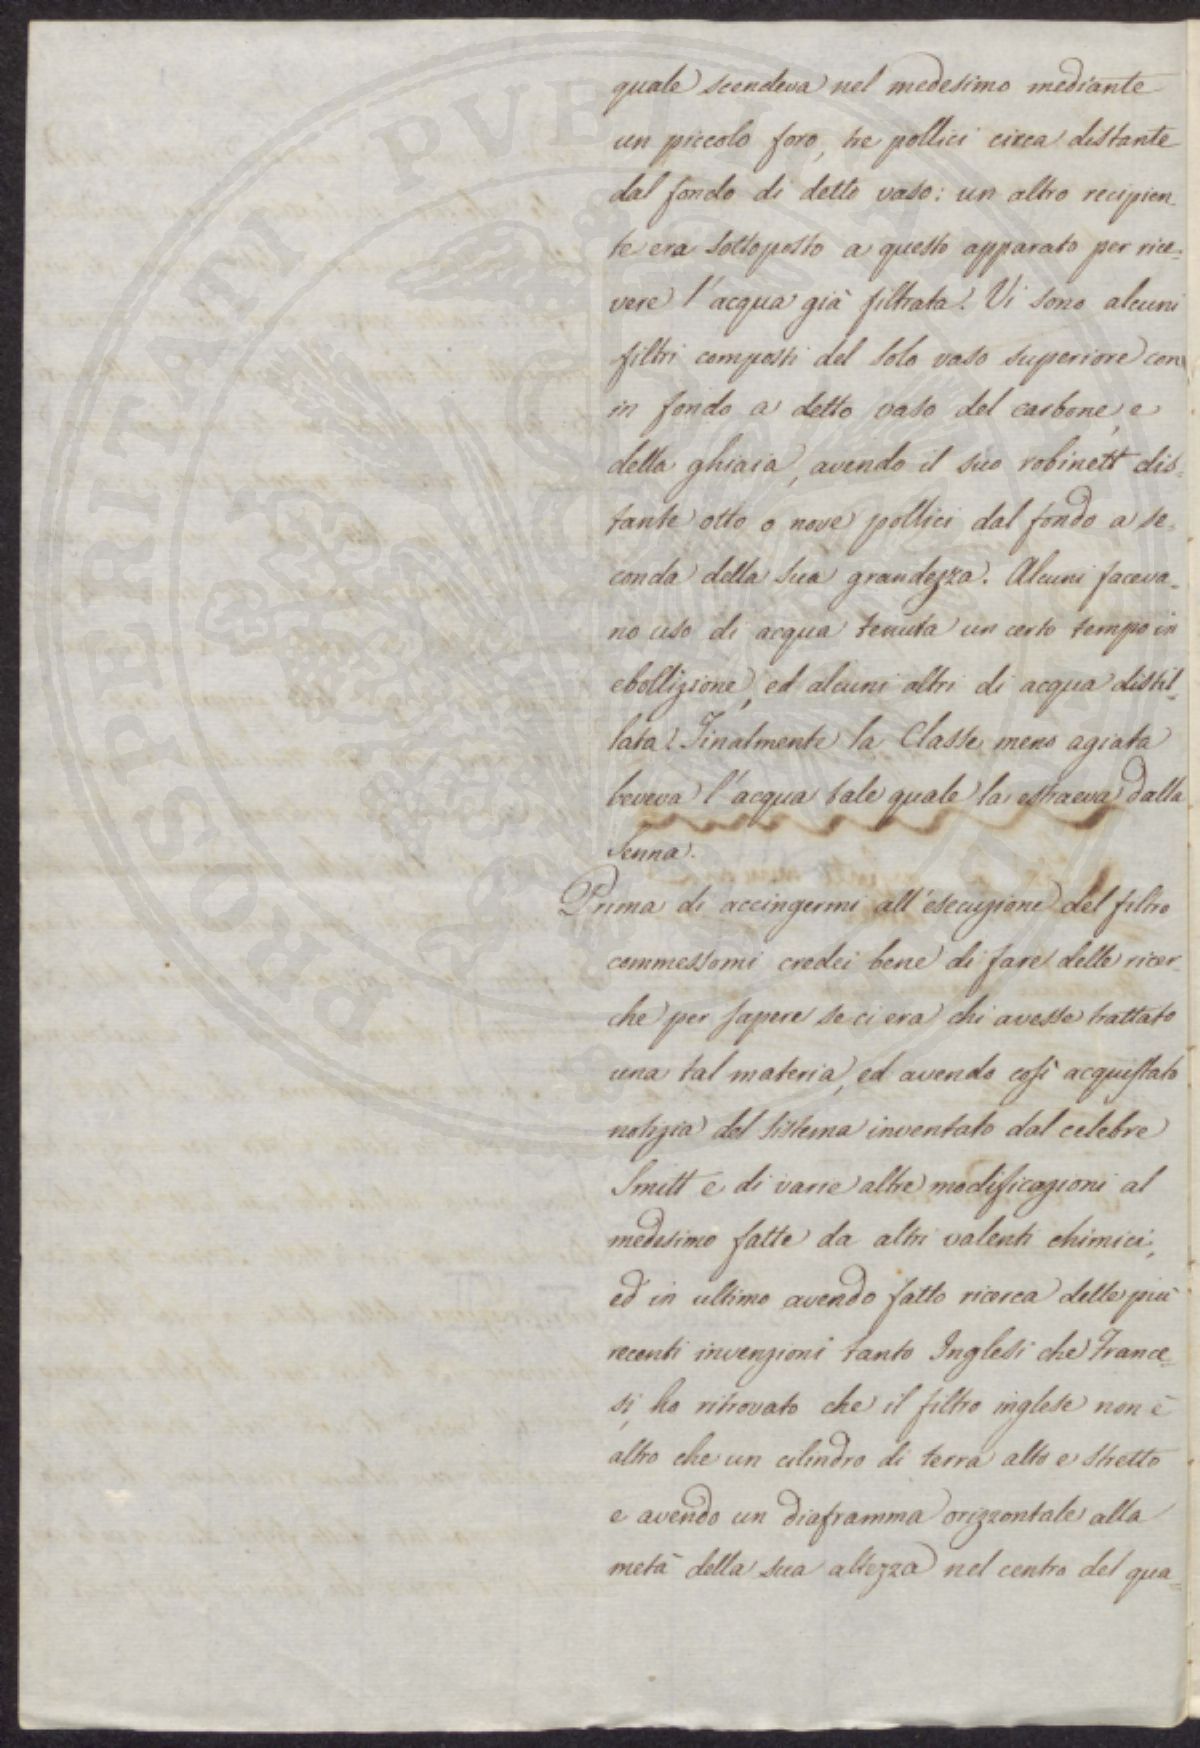 quale scendeva nel medesimo mediante
un piccolo foro, tre pollici circa distante
dal fondo di detto vaso: un altro recipien-
te era sottoposto a questo apparato per rice-
vere l'acqua già filtrata. Vi sono alcuni
filtri composti del solo vaso superiore con
in fondo a detto vaso del carbone, e
della ghiaia, avendo il suo robinett dis-
tante otto o nove pollici dal fondo a se-
conda della sua grandezza. Alcuni faceva-
no uso di acqua tenuta un certo tempo in
ebollizione, ed alcuni altri di acqua distil-
lata. Finalmente la Classe meno agiata
beveva l'acqua tale quale la estraeva dalla
Senna.
Prima di accingermi all'esecuzione del filtro
commessomi credei bene di fare delle ricer-
che per sapere se ci era chi avesse trattato
una tal materia, ed avendo così acquistato
notizia del sistema inventato dal celebre
Smitt e di varie altre modificazioni al
medesimo fatte da altri valenti chimici,
ed in ultimo avendo fatto ricerca delle più
recenti invenzioni tanto Inglesi che France-
si, ho ritrovato che il filtro inglese non è
altro che un cilindro di terra alto e stretto
e avendo un diaframma orizzontale alla
metà della sua altezza nel centro del qua-
PROSPERITATI PVBLICAE